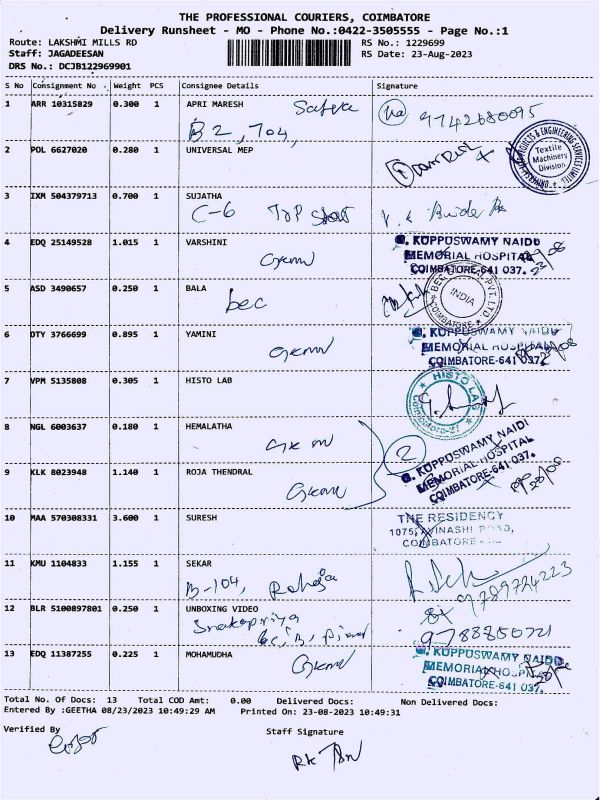 THE PROFESSIONAL COURIERS, COIMBATORE
Delivery Runsheet - MO - Phone No.:0422-3505555 - Page No.:1
Route: LAKSHMI MILLS RD
RS No.: 1229699
Staff: JAGADEESAN
RS Date: 23-Aug-2023
DRS No.: DCJB122969901
S No Consignment No Weight PCS Consignee Details Signature
1 ARR 10315829 0.300 1 APRI MARESH
B2, 704,
2 POL 6627020 0.280 1 UNIVERSAL MEP
Textile Machinery Division
3 IXM 504379713 0.700 1 SUJATHA
C-6 Top
4 EDQ 25149528 1.015 1 VARSHINI
Gkmn
G. KUPPUSWAMY NAIDU
MEMORIAL HOSPITAL
COIMBATORE-641 037.
5 ASD 3490657 0.250 1 BALA
bec
INDIA
COIMBATORE
6 OTY 3766699 0.895 1 YAMINI
Gkmn
G. KUPPUSWAMY NAIDU
MEMORIAL HOSPITAL
COIMBATORE-641 037.
7 VPM 5135808 0.305 1 HISTO LAB
HISTO LAB
8 NGL 6003637 0.180 1 HEMALATHA
Gkmn
2
G. KUPPUSWAMY NAIDU
MEMORIAL HOSPITAL
COIMBATORE-641 037.
9 KLK 8023948 1.140 1 ROJA THENDRAL
Gkmn
10 MAA 570308331 3.600 1 SURESH
THE RESIDENCY
1075, AVINASHI ROAD,
COIMBATORE
11 KMU 1104833 1.155 1 SEKAR
B-104, Raheja
9789724223
12 BLR 5100897801 0.250 1 UNBOXING VIDEO
13 EDQ 11387255 0.225 1 MOHAMUDHA
Gkmn
G. KUPPUSWAMY NAIDU
MEMORIAL HOSPITAL
COIMBATORE-641 037.
Total No. Of Docs: 13 Total COD Amt: 0.00 Delivered Docs: Non Delivered Docs:
Entered By :GEETHA 08/23/2023 10:49:29 AM Printed On: 23-08-2023 10:49:31
Verified By
Staff Signature